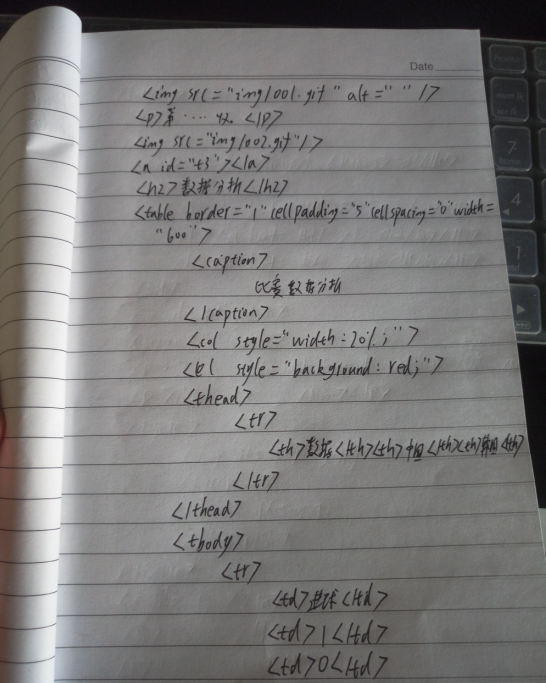 Date
<img src="img/001.gif" alt=" " />
<p>第 ····· 权. </p>
<img src="img/002.gif"/>
<a id="t3"></a>
<h2>数据分析</h2>
<table border="1" cellpadding="5" cellspacing="0" width=
"600">
<caption>
比赛数据分析
</caption>
<col style="width:20%;">
<col style="background:red;">
<thead>
<tr>
<th>数据</th><th>中国</th><th>韩国<th>
</tr>
</thead>
<tbody>
<tr>
<td>进球</td>
<td>1</td>
<td>0</td>
7
4
1